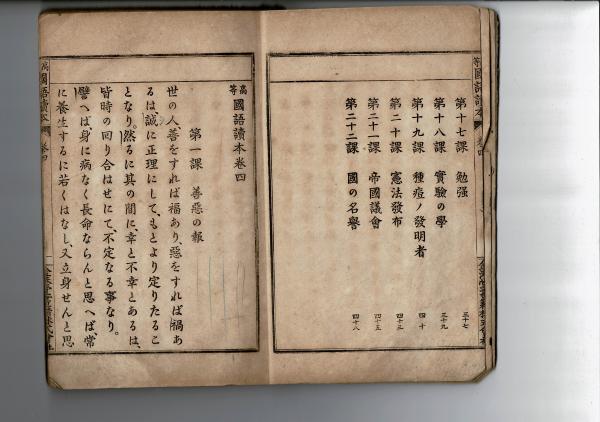 第十七課 勉强 三十七
第十八課 實驗の學 三十九
第十九課 種痘ノ發明者 四十
第二十課 憲法發布 四十三
第二十一課 帝國議會 四十五
第二十二課 國の名譽 四十八
高等國語讀本卷四
第一課 善惡の報
世の人、善をすれば福あり、惡をすれば禍あ
るは、誠に正理にして、もとより定りたるこ
となり。然るに其の間に、幸と不幸とあるは、
皆時の回り合はせにて、不定なる事なり。
譬へば、身に病なく長命ならんと思へば、常
に養生するに若くはなし、又立身せんと思
國語讀本 卷四